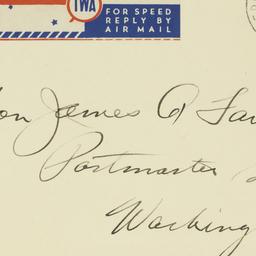 TWA
FOR SPEED
REPLY BY
AIR MAIL
on James A Far
Postmaster
Washing